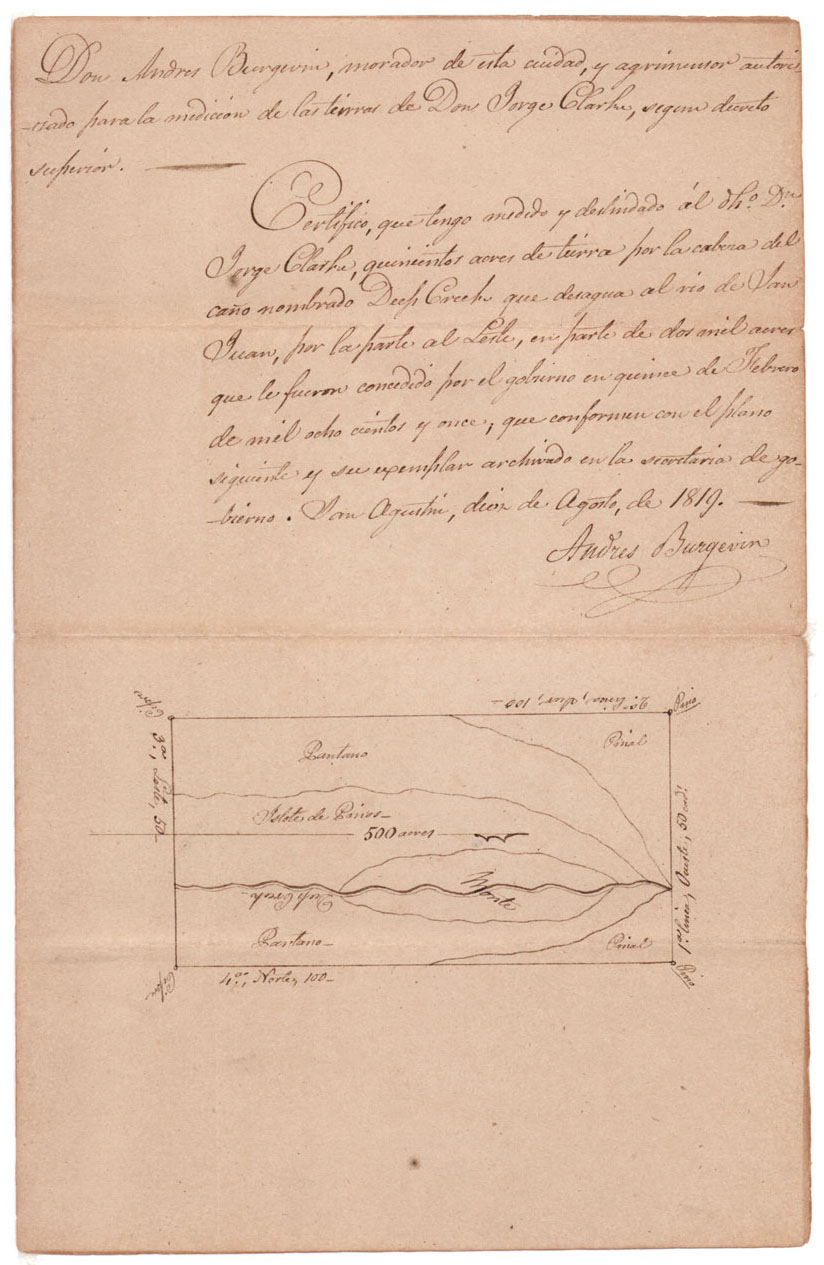 Don Andres Burgevin, morador de esta ciudad, y agrimensor autori-
-zado para la medicion de las tierras de Don Jorge Clarke, segun decreto
superior.
Certifico, que tengo medido y deslindado ál dho. Dn.
Jorge Clarke, quinientos acres de tierra por la cabeza del
caño nombrado Deep Creek que desagua al rio de San
Juan, por la parte al Leste, en parte de dos mil acres
que le fueron concedido por el gobierno en quince de Febrero
de mil ocho cientos y once; que conformen con el plano
siguiente y su exemplar archivado en la secretaria de go-
-bierno. San Agustin, diez de Agosto, de 1819.
Andres Burgevin
2a. linea, Sur, 100-
Pino
Cipre
Pantano
Pinal
3a., Leste, 50-
Islote de Pinos-
500 acres
1a. linea, Oueste, 50 cds.
Monte
Deep Creek
Pantano-
Pinal
Cipre
4a., Norte, 100-
Pino